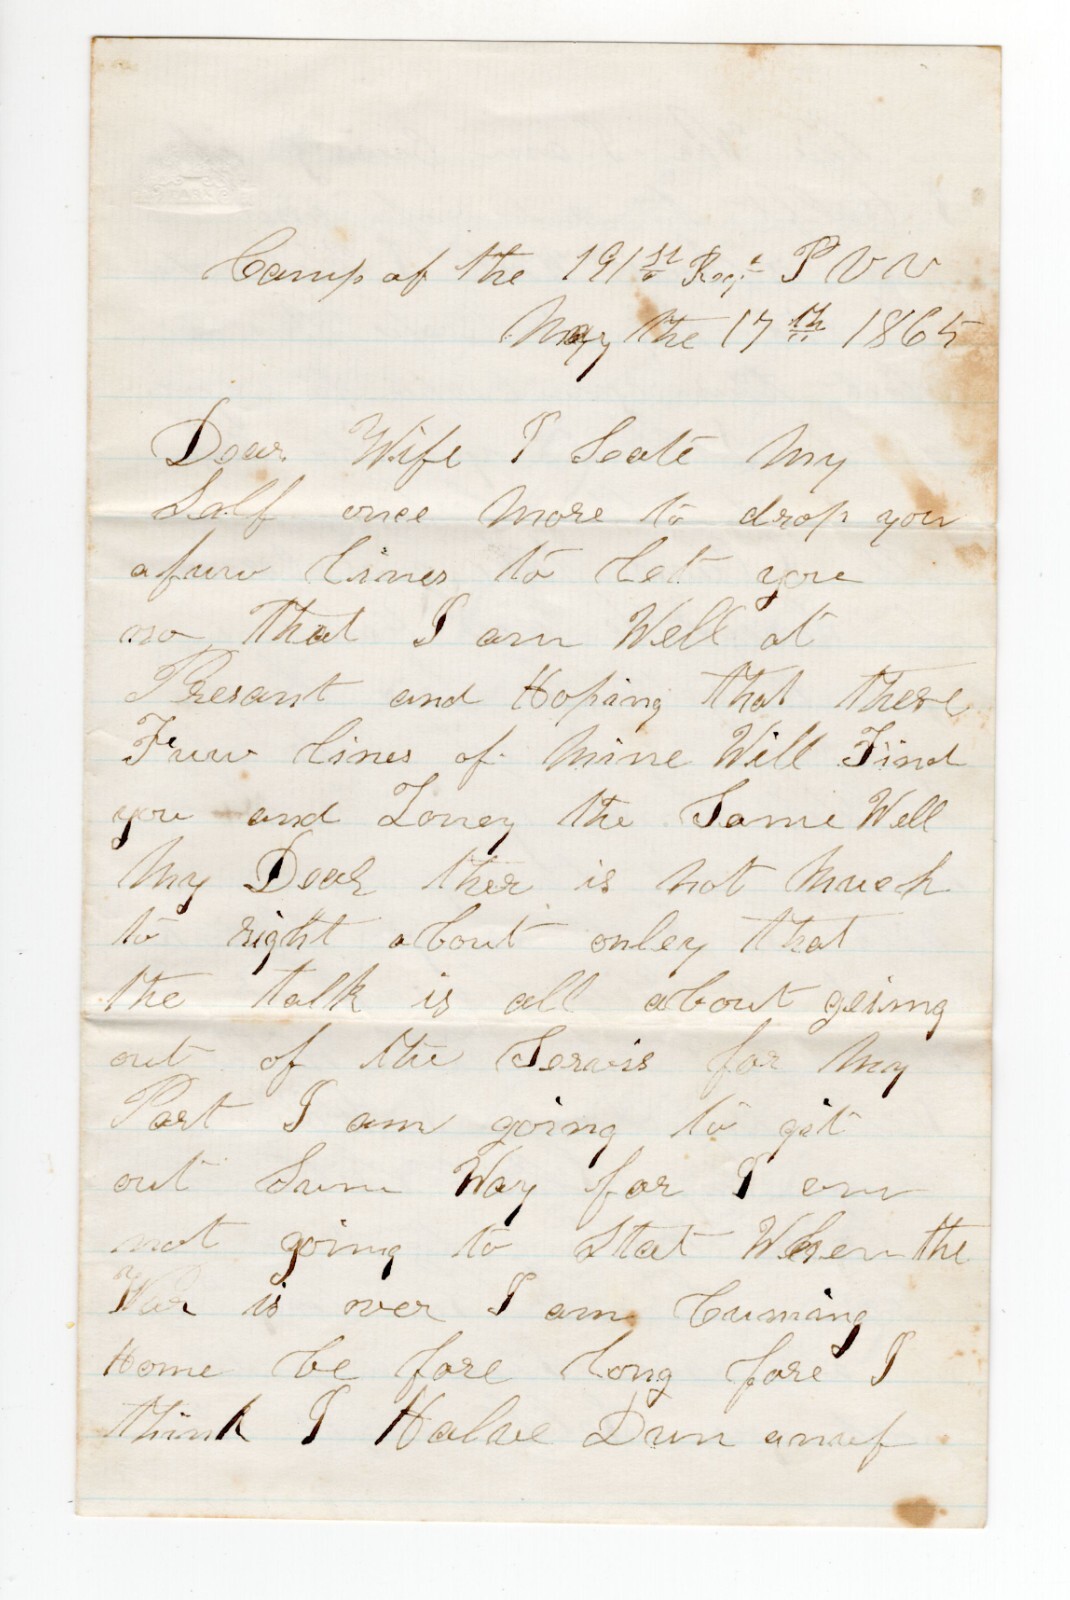 Camp of the 191st Regt P V V
May the 17th 1865
Dear Wife I Seate My
Self once More to drop you
a fuw lines to let you
no that I am Well at
Presant and Hoping that these
Fuw lines of Mine Will Find
you and Loney the Same Well
My Dear ther is not Much
to right about onley that
the talk is all about going
out of the Servis for My
Part I am going to git
out Sum Way for I am
not going to Stat When the
War is over I am Cuming
Home be fore long fore I
think I Halve Dun anuf